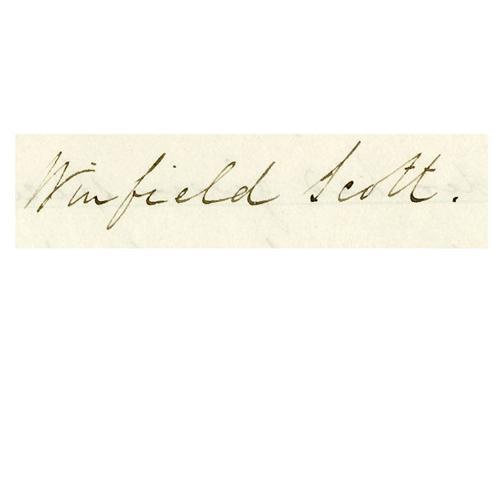 Winfield Scott.